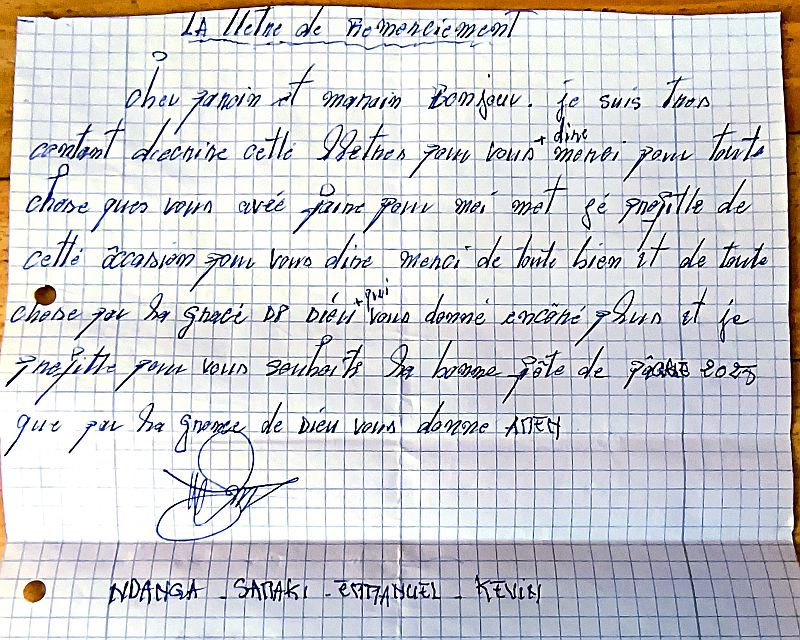 LA lletre de Remerciement
cher parain et marain Bonjour. je suis tres
contant d'ecrire cette lletres pour vous + dire merci pour toute
chose ques vous avée faire pour moi met jé profitte de
cetté âccasion pour vous dire merci de toute bien Et de toute
chose par la gracé DE Diéu + puri vous donné encôré plus et je
profitte pour vous souhaits la bonne fête de pâque 2025
que par la grace de Diéu vous donne AMEN
NDANGA - SAMAKI - EMMANUEL - KEVIN